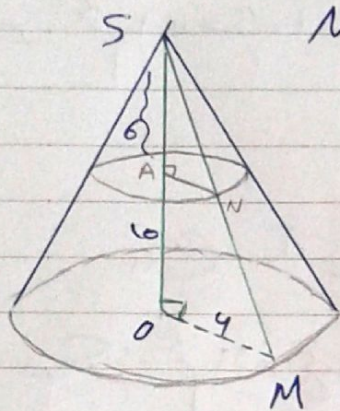 S N
6
A
N
O 4
M